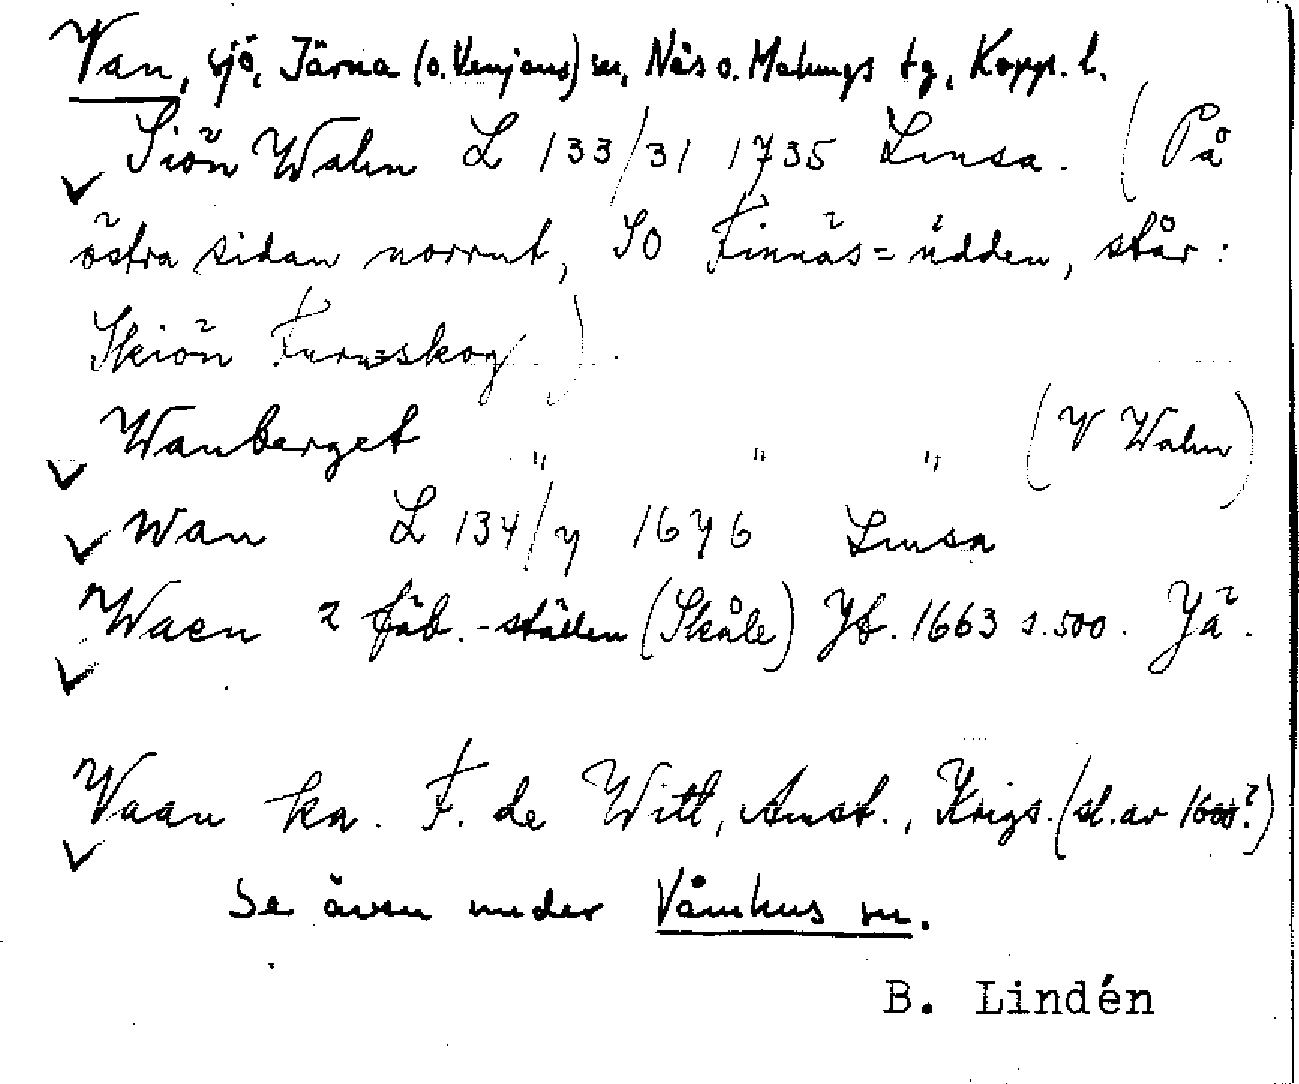 Van, sjö, Järna (o. Venjans) sn, Nås o. Malungs tg, Kopp. l.
Siön Wahn L 133/31 1735 Lmsa. (På
östra sidan norrut, SO Finnäs=udden, står:
Skiön Furu=skog).
Wanberget " " " (V Wahn)
Wan L 134/7 1676 Lmsa
Waen 2 fäb.-ställen (Skåle) Jb. 1663 s.500. Jä.
Vaan ka. F. de Witt, Amst., Krigs. (sl. av 1600?)
Se även under Våmhus sn.
B. Lindén